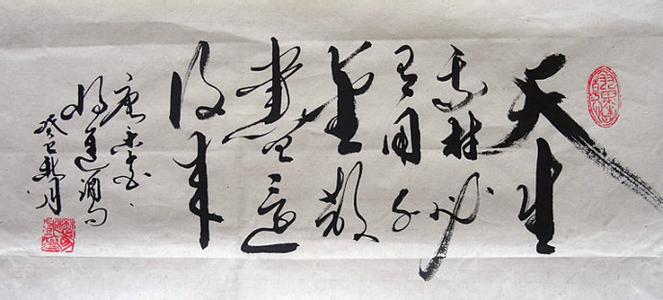 天生
我材必
有用千
金散
盡還
復来
唐李白
将進酒句
癸巳 月